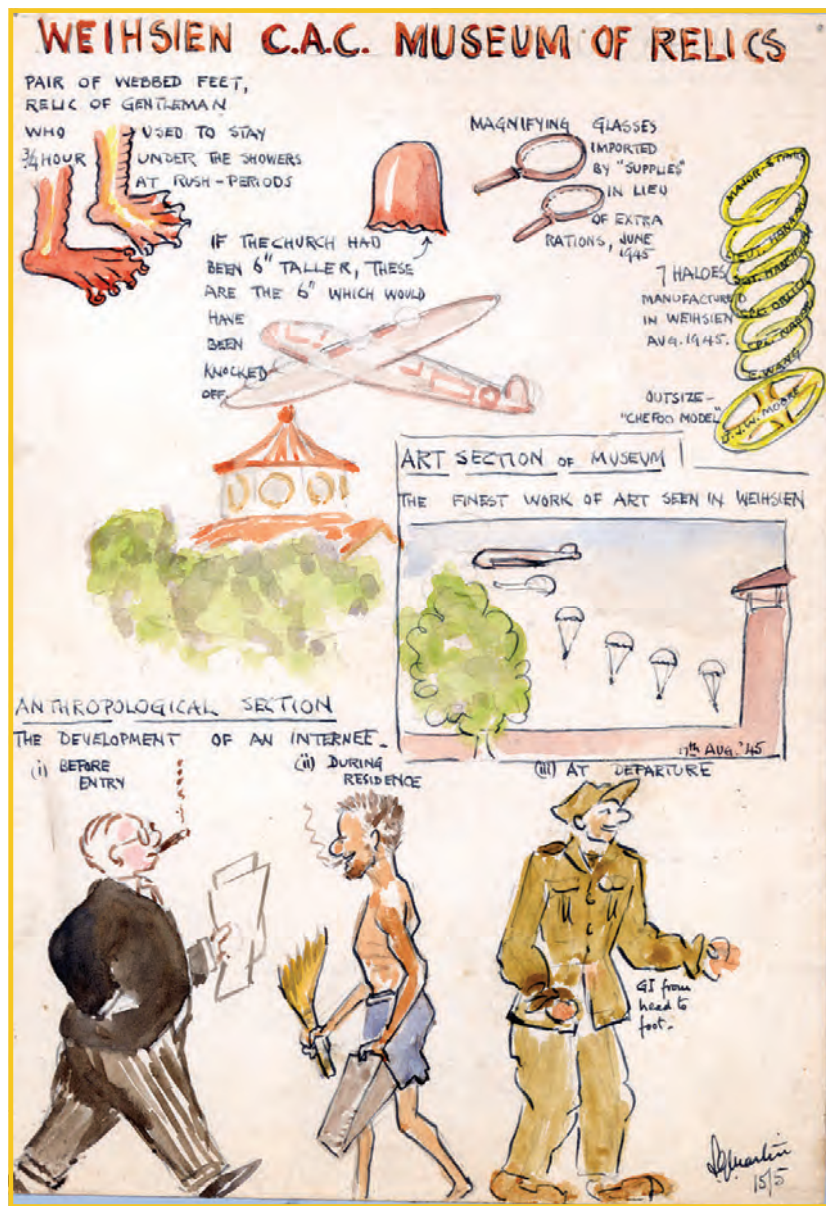 WEIHSIEN C.A.C. MUSEUM OF RELICS
PAIR OF WEBBED FEET,
RELIC OF GENTLEMAN
WHO USED TO STAY
3/4 HOUR UNDER THE SHOWERS
AT RUSH-PERIODS
IF THE CHURCH HAD
BEEN 6" TALLER, THESE
ARE THE 6" WHICH WOULD
HAVE
BEEN
KNOCKED
OFF.
MAGNIFYING GLASSES
IMPORTED
BY "SUPPLIES"
IN LIEU
OF EXTRA
RATIONS, JUNE
1945
7 HALOES
MANUFACTURED
IN WEIHSIEN
AUG. 1945.
E. WANG
OUTSIZE-
"CHEFOO MODEL"
J.W. MOORE
ART SECTION OF MUSEUM
THE FINEST WORK OF ART SEEN IN WEIHSIEN
17th AUG. '45
ANTHROPOLOGICAL SECTION
THE DEVELOPMENT OF AN INTERNEE-
(i) BEFORE
ENTRY
(ii) DURING
RESIDENCE
(iii) AT DEPARTURE
GI from
head to
foot-
15/5